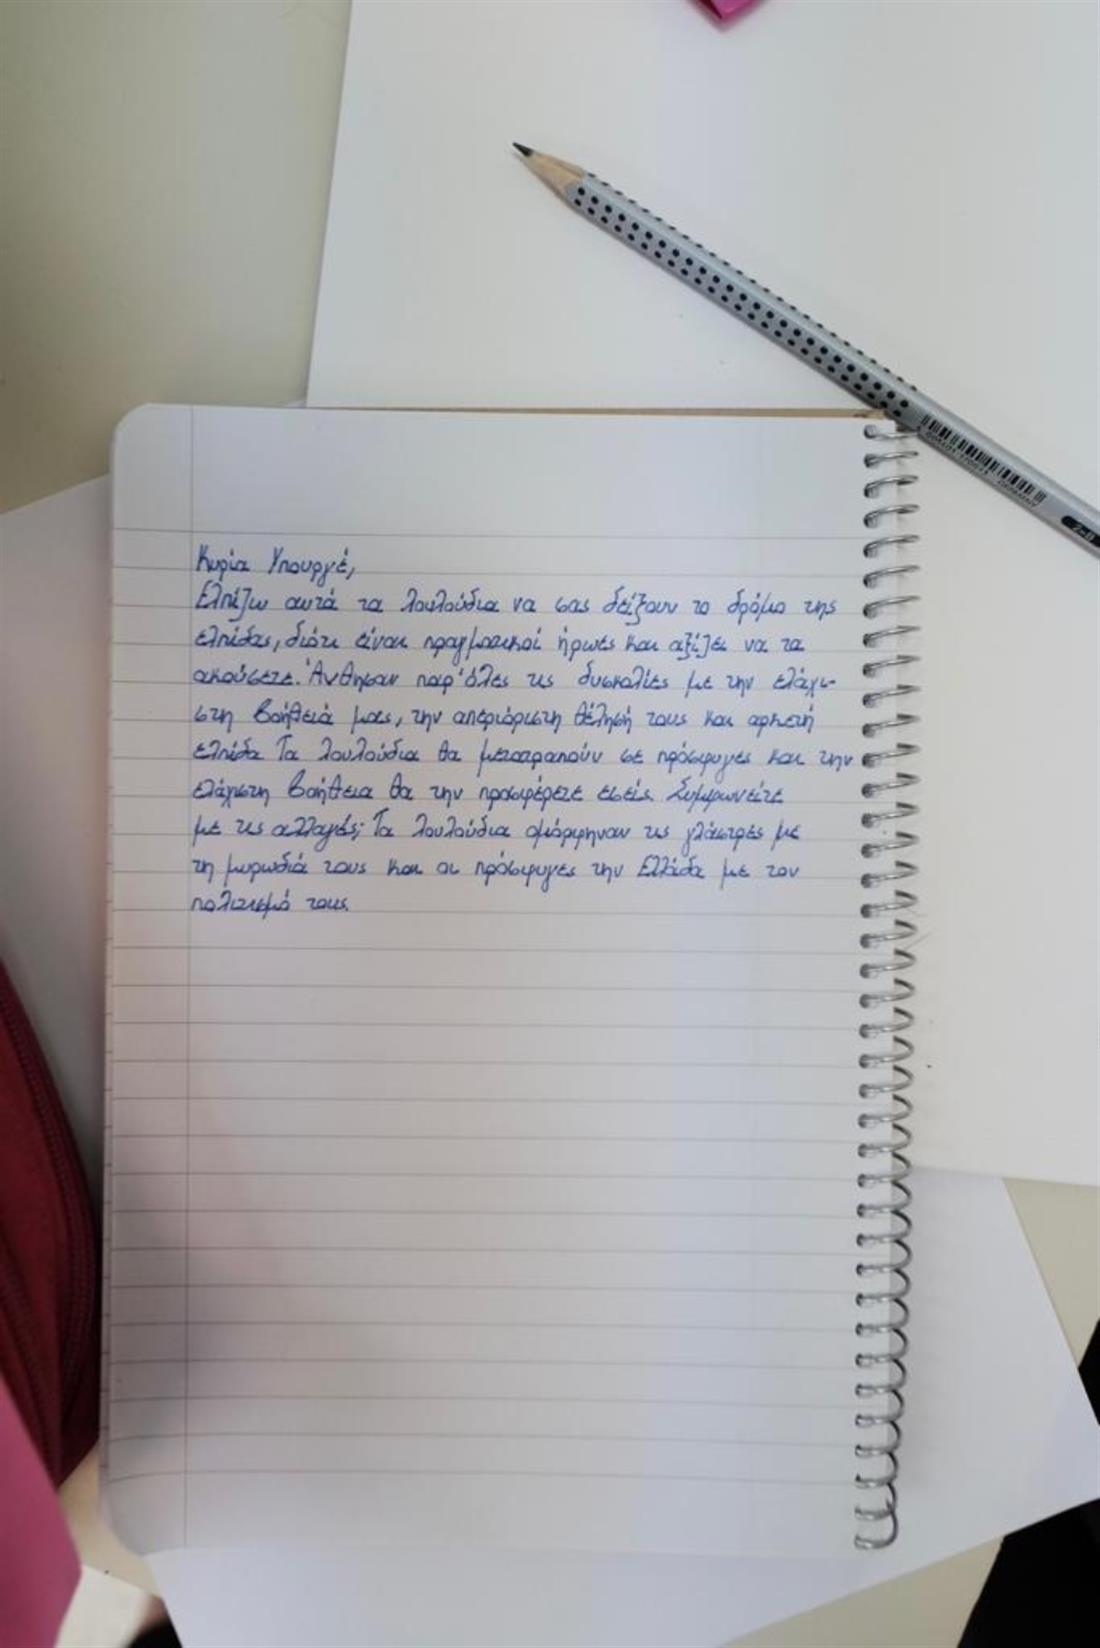 Κυρία Υπουργέ,
Ελπίζω αυτά τα λουλούδια να σας δείξουν το δρόμο της
ελπίδας, διότι είναι πραγματικοί ήρωες και αξίζει να τα
ακούσετε. Άνθησαν παρ'όλες τις δυσκολίες με την ελάχι-
στη βοήθειά μας, την απεριόριστη θέλησή τους και αρκετή
ελπίδα Τα λουλούδια θα μετατραπούν σε πρόσφυγες και την
ελάχιστη βοήθεια θα την προσφέρετε εσείς. Συμφωνείτε
με τις αλλαγές; Τα λουλούδια ομόρφηναν τις γλάστρές με
τη μυρωδιά τους και οι πρόσφυγες την Ελλάδα με τον
πολιτισμό τους.